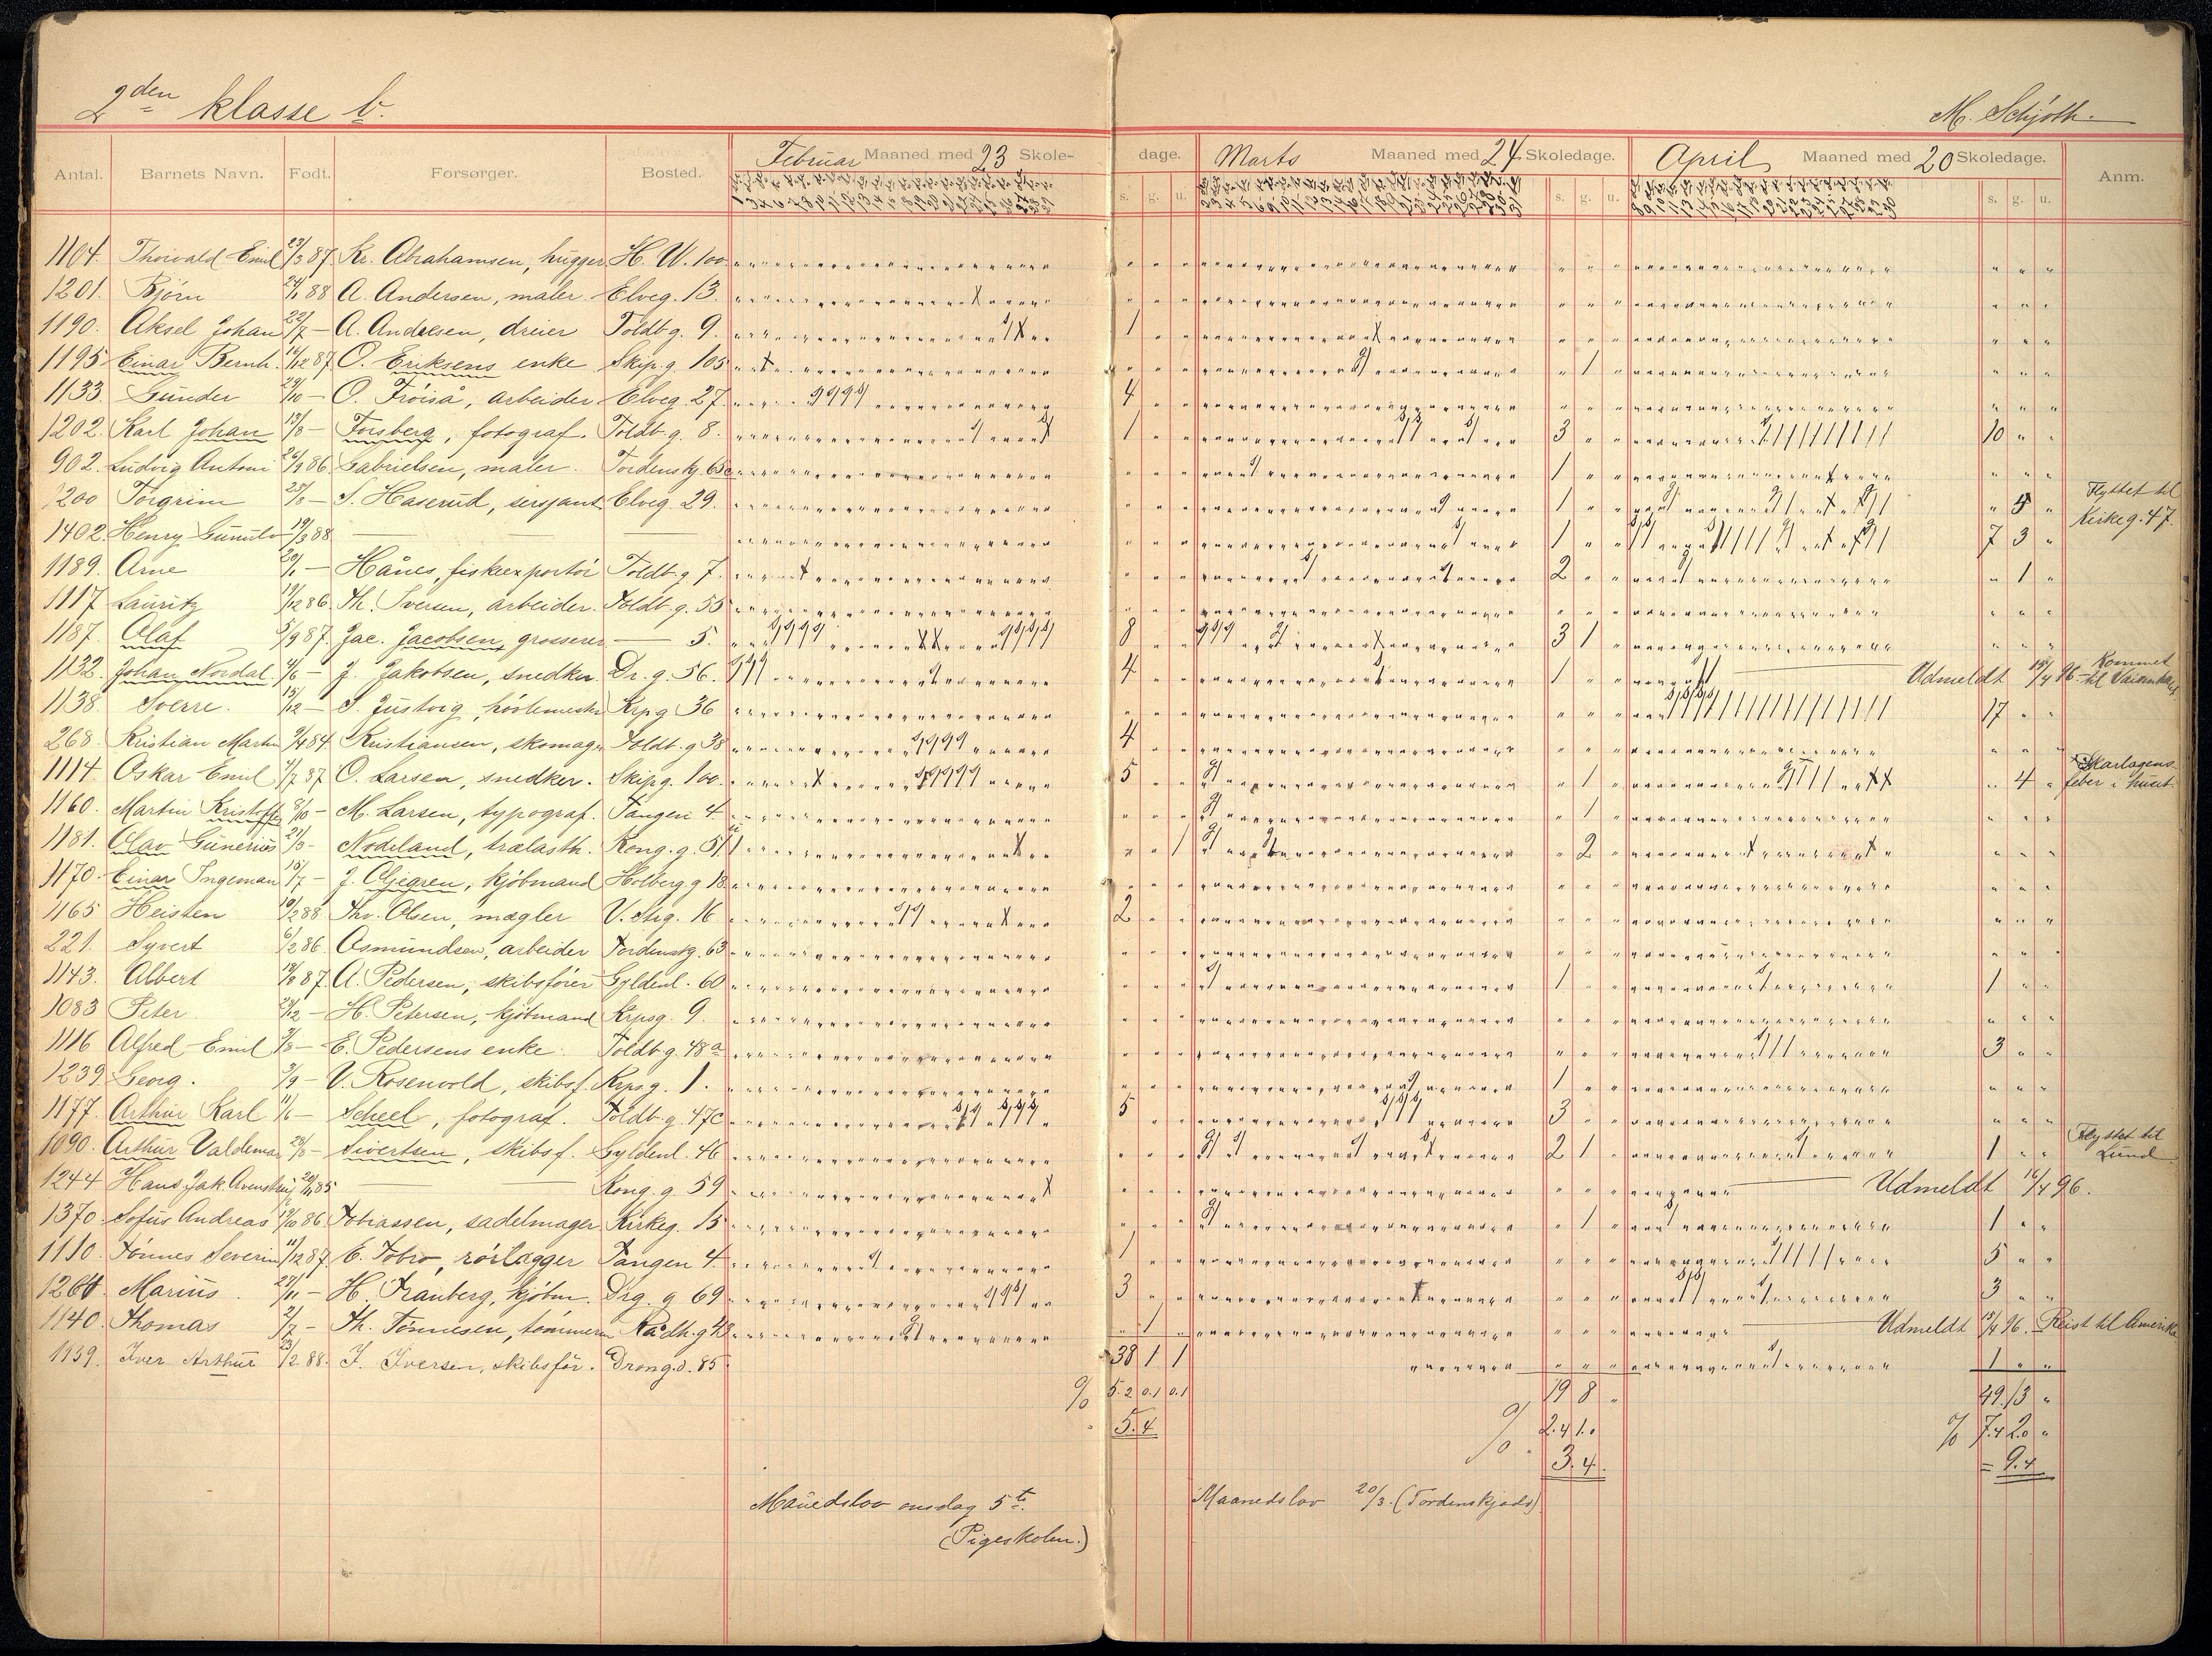 2den klasse b.
M. Schjøth.
Antal. Barnets Navn. Født. Forsørger. Bosted. Februar Maaned med 23 Skole- dage. Marts Maaned med 24 Skoledage. April Maaned med 20 Skoledage. Anm.
s. g. u. s. g. u. s. g. u.
1104. Thorvald Emil 23/3 87. Kr. Abrahamsen, hugger H. W. 100
1201. Bjørn 88 A. Andersen, maler. Elveg. 13.
1190. Aksel Johan 22/7 — A. Andresen, dreier Toldbg. 9. 1
1195 Einar Bernh. 16/12 87 O. Eriksens enke Skip.g. 105 1
1133. Gunder 29/10 — O. Frøiså, arbeider Elveg. 27. 4
1202. Karl Johan 13/8 — Forsberg, fotograf. Toldb.g. 8. 1 3 10
902. Ludvig Antoni 26/9 86 Gabrielsen, maler. Tordenskg. 1
1200 Torgrim 23/8 — S. Haserud, sersjant Elveg 29. 1 5 Flyttet til
1402. Henry Gunulv 19/3 88 — — — 1 7 3 Kirkeg. 47.
1189. Arne 20/1 — Hånes, fiskeexportør Toldb.g 7. 2 1
1117 Lauritz 19/12 86. Th. Iversen, arbeider. Toldb.g. 55
1187. Olaf 5/9 87. Jac. Jacobsen, grosserer — 5. 8 3 1
1132. Johan Nordal. 4/6 — J. Jakobsen, snedker. Dr.g. 56. 4 1 Udmeldt 15/4 96. Kommet til
1138. Sverre. 15/12 — S. Justvig, Krpg 36 17
268. Kristian Martin 9/4 84 Kristiansen, skomager Toldb.g 38 4
1114. Oskar Emil 4/7 87 O. Larsen, snedker. Skipg. 100. 5 1 4 Skarlagens-
feber i huset.
1160. Martin Kristoffer 8/10 — M. Larsen, typograf. Tangen 4 1
1181. Olav Gunerius 21/3 — Nodeland, trælasth. Kong.g. 51 1 2
1170. Einar Ingeman 15/7 — J. Oljegren, kjøbmand Holberg.g 18.
1165 Heisten 10/2 88. Thv. Olsen, mægler V. Strg. 16 2
221. Syvert 6/2 86. Osmundsen, arbeider Tordenskg. 63
1143. Albert 87. A. Pedersen, skibsfører Gyldenl. 60 1 1
1083 Peter 29/12 — H. Petersen, kjøbmand Krpsg. 9.
1116 Alfred Emil 3/8 — E. Pedersens enke. Toldb.g. 48a 3
1239 Georg. 3/9 — V. Rosenvold, skibsf. Krpsg. 1. 1
1177. Arthur Karl 11/6 — Scheel, fotograf. Toldb.g. 47c 5 3
1090. Arthur Valdemar 28/8 — Sivertsen, skibsf. Gyldenl. 46 2 1 1 Flyttet til
Lund
1244 Hans Jak. 85 — Kong.g. 59 Udmeldt 16/4 96.
1370. Sofus Andreas 19/10 86. Tobiassen, sadelmager Kirkeg. 15 1 1
1110. Tønnes Severin 11/12 87. E. Tobro, rørlægger Tangen 4. 1 5
1260 Marius 27/11 — H. Tranberg, kjøbm. Drg.g 69 3 3
1140. Thomas 2/7 — Th. Tønnesen, tømmerm. Rådh.g 1 Udmeldt 15/4 96. Reist til Amerika
1139. Iver Arthur 23/2 88. I. Iversen, skibsfør. Drong.s. 85. 38 1 1 1
% 5.2 0.1 0.1 19 8 49. 13
5.4 % 2.4 1.0 % 7.4 2.0
3.4. = 9.4
Månedslov onsdag 5te.
(Pigeskolen.)
Maanedslov 20/3. (Tordenskjolds)